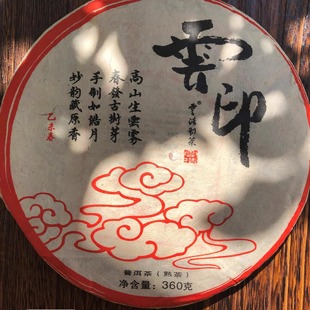 雲印
高山生雲霧
春發古樹芽
手制如皓月
妙韵藏原香
乙未春
普洱茶（熟茶）
净含量：360克